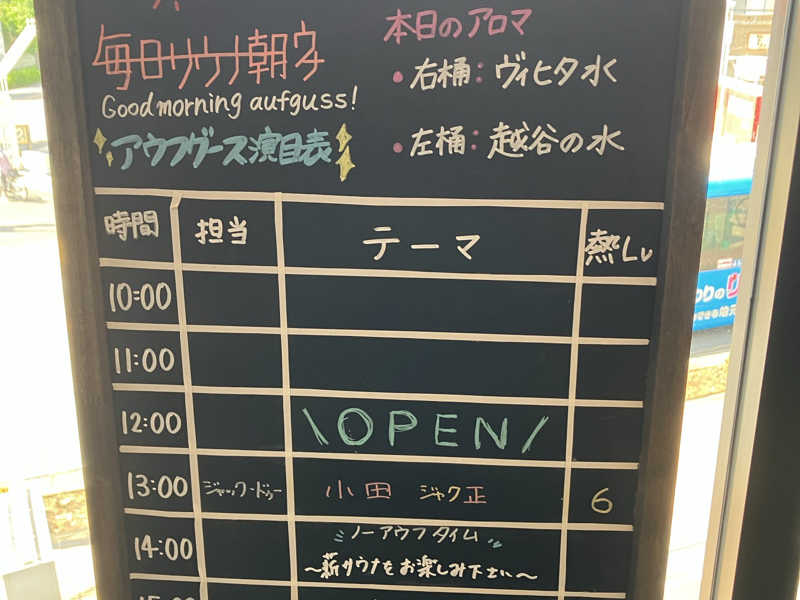 毎日サウナ朝宇
Good morning aufguss!
アウフグース演目表
本日のアロマ
・右桶：ヴィヒタ水
・左桶：越谷の水
時間 担当 テーマ 熱Lv
10:00
11:00
12:00 \OPEN/
13:00 ジャック・ドゥー 小田 ジャク正 6
14:00 ノーアウフタイム
～薪サウナをお楽しみ下さい～